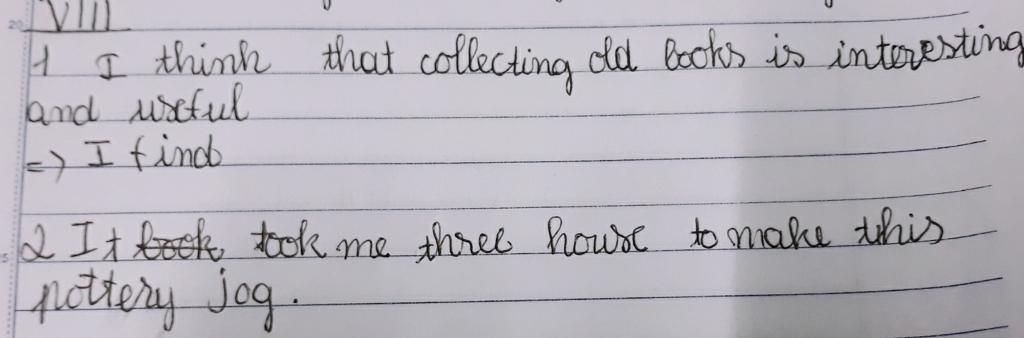 VIII
1 I think that collecting old books is interesting
and useful
=> I find
2 It took took me three house to make this
pottery jog.